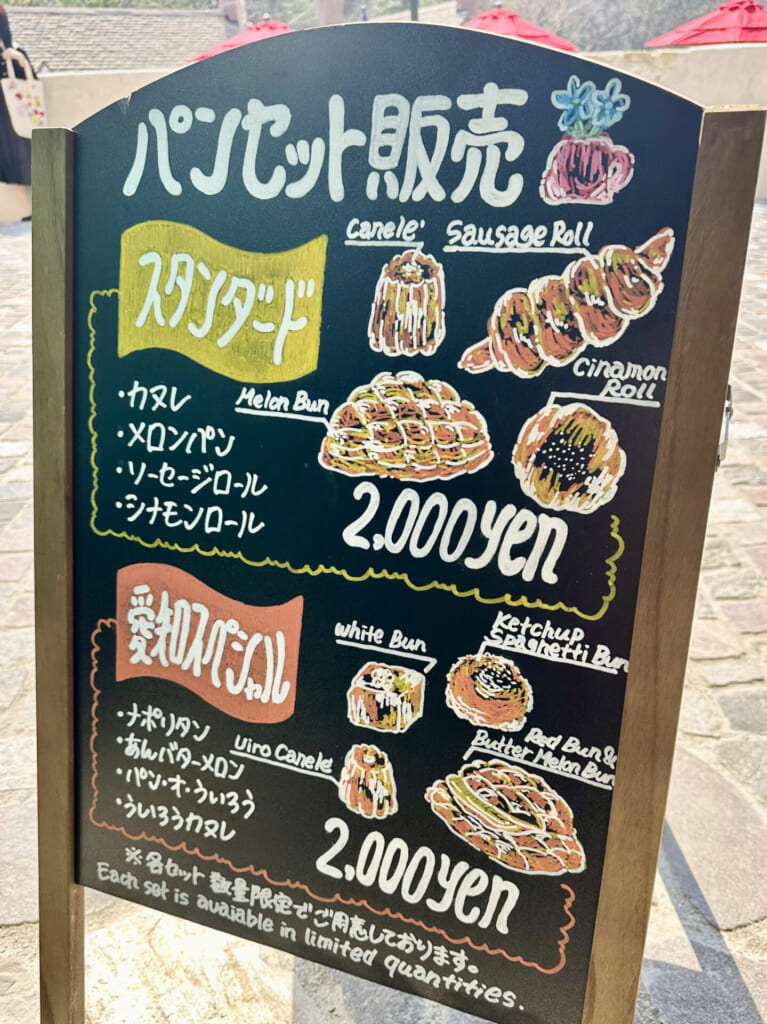 パンセット販売
スタンダード
Canele'
Sausage Roll
Melon Bun
Cinamon
Roll
・カヌレ
・メロンパン
・ソーセージロール
・シナモンロール
2,000yen
愛知スペシャル
White Bun
Ketchup
Spaghetti Bun
Uiro Canele'
Red Bun &
Butter Melon Bun
・ナポリタン
・あんバターメロン
・パン・オ・ういろう
・ういろうカヌレ
2,000yen
※各セット数量限定でご用意しております。
Each set is avajable in limited quantities.